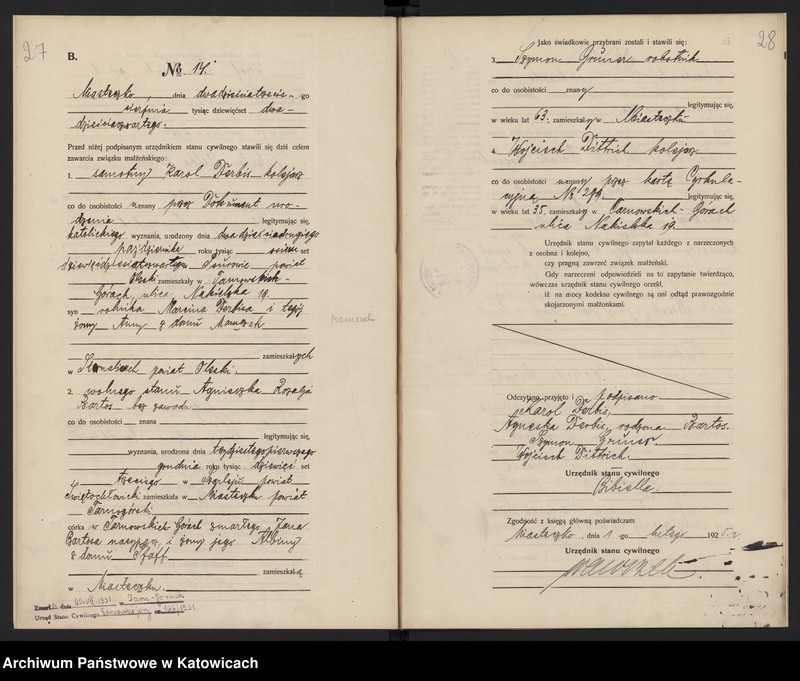 27
B.
№ 14.
Miasteczko, dnia dwudziestotrzecie-go
sierpnia tysiąc dziewięćset dwa-
dziesiaczwartego.
Przed niżej podpisanym urzędnikiem stanu cywilnego stawili się dziś celem
zawarcia związku małżeńskiego:
1. samotny Karol Derbis kolejarz
co do osobistości uznany przez Dokument uro-
dzenia legitymując się,
katolickiego wyznania, urodzony dnia dwudziestodrugiego
października roku tysiąc osiem set
powiat
Oleski zamieszkały w Tarnowskich-
Górach, ulica Nakielska 19.
syn rolnika Marcina Derbisa i tegoż
żony Anny z domu Mamzech
zamieszkałych
w powiat Oleski.
2. wolnego stanu Agnieszka Rozalja
Bartos bez zawodu
co do osobistości znana
legitymując się,
wyznania, urodzona dnia trzydziestegopierwszego
grudnia roku tysiąc dziewięć set
trzeciego w powiat
Świętochłowicki zamieszkała w Miasteczku powiat
Tarnogórski
córka w Tarnowskich Górach zmarłego Jana
Bartosa i żony jego Albiny
z domu Pfaff
zamieszkałą
w Miasteczku.
Zmarł dnia 1931 w
Urząd Stanu Cywilnego
Mamzech
28
Jako świadkowie przybrani zostali i stawili się:
3. Szymon Gruner robotnik
co do osobistości znany
legitymując się,
w wieku lat 63, zamieszkały w Miasteczku
4. Wojciech Dittrich kolejarz
co do osobistości uznany przez kartę Cyrkula-
cyjną № 299 legitymując się,
w wieku lat 35, zamieszkały w Tarnowskich-Górach
ulica Nakielska 19.
Urzędnik stanu cywilnego zapytał każdego z narzeczonych
z osobna i kolejno,
czy pragną zawrzeć związek małżeński.
Gdy narzeczeni odpowiedzieli na to zapytanie twierdząco,
wówczas urzędnik stanu cywilnego orzekł,
iż na mocy kodeksu cywilnego są oni odtąd prawozgodnie
skojarzonymi małżonkami.
Odczytano, przyjęto i podpisano
Karol Derbis,
Agneska Derbis, rodzona Bartos.
Szymon Gruner
Wojciech Dittrich.
Urzędnik stanu cywilnego
Bibiella
Zgodność z księgą główną poświadczam
Miasteczko, dnia 1 go lutego 1925 r.
Urzędnik stanu cywilnego
Archiwum Państwowe w Katowicach